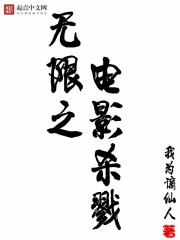 起点中文网
无限之
电影杀戮
我为谪仙人 著